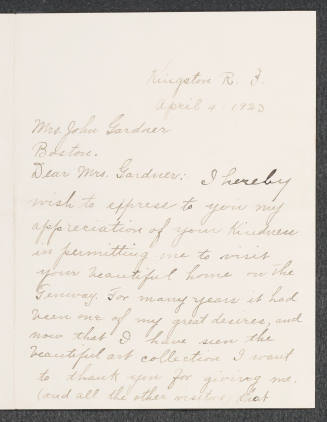 Kingston R. I.
April 4. 1923
Mrs. John Gardner
Boston.
Dear Mrs. Gardner: I hereby
wish to express to you my
appreciation of your kindness
in permitting me to visit
your beautiful home on the
Fenway. For many years it had
been one of my great desires, and
now that I have seen the
beautiful art collection I want
to thank you for giving me
(and all the other visitors) that